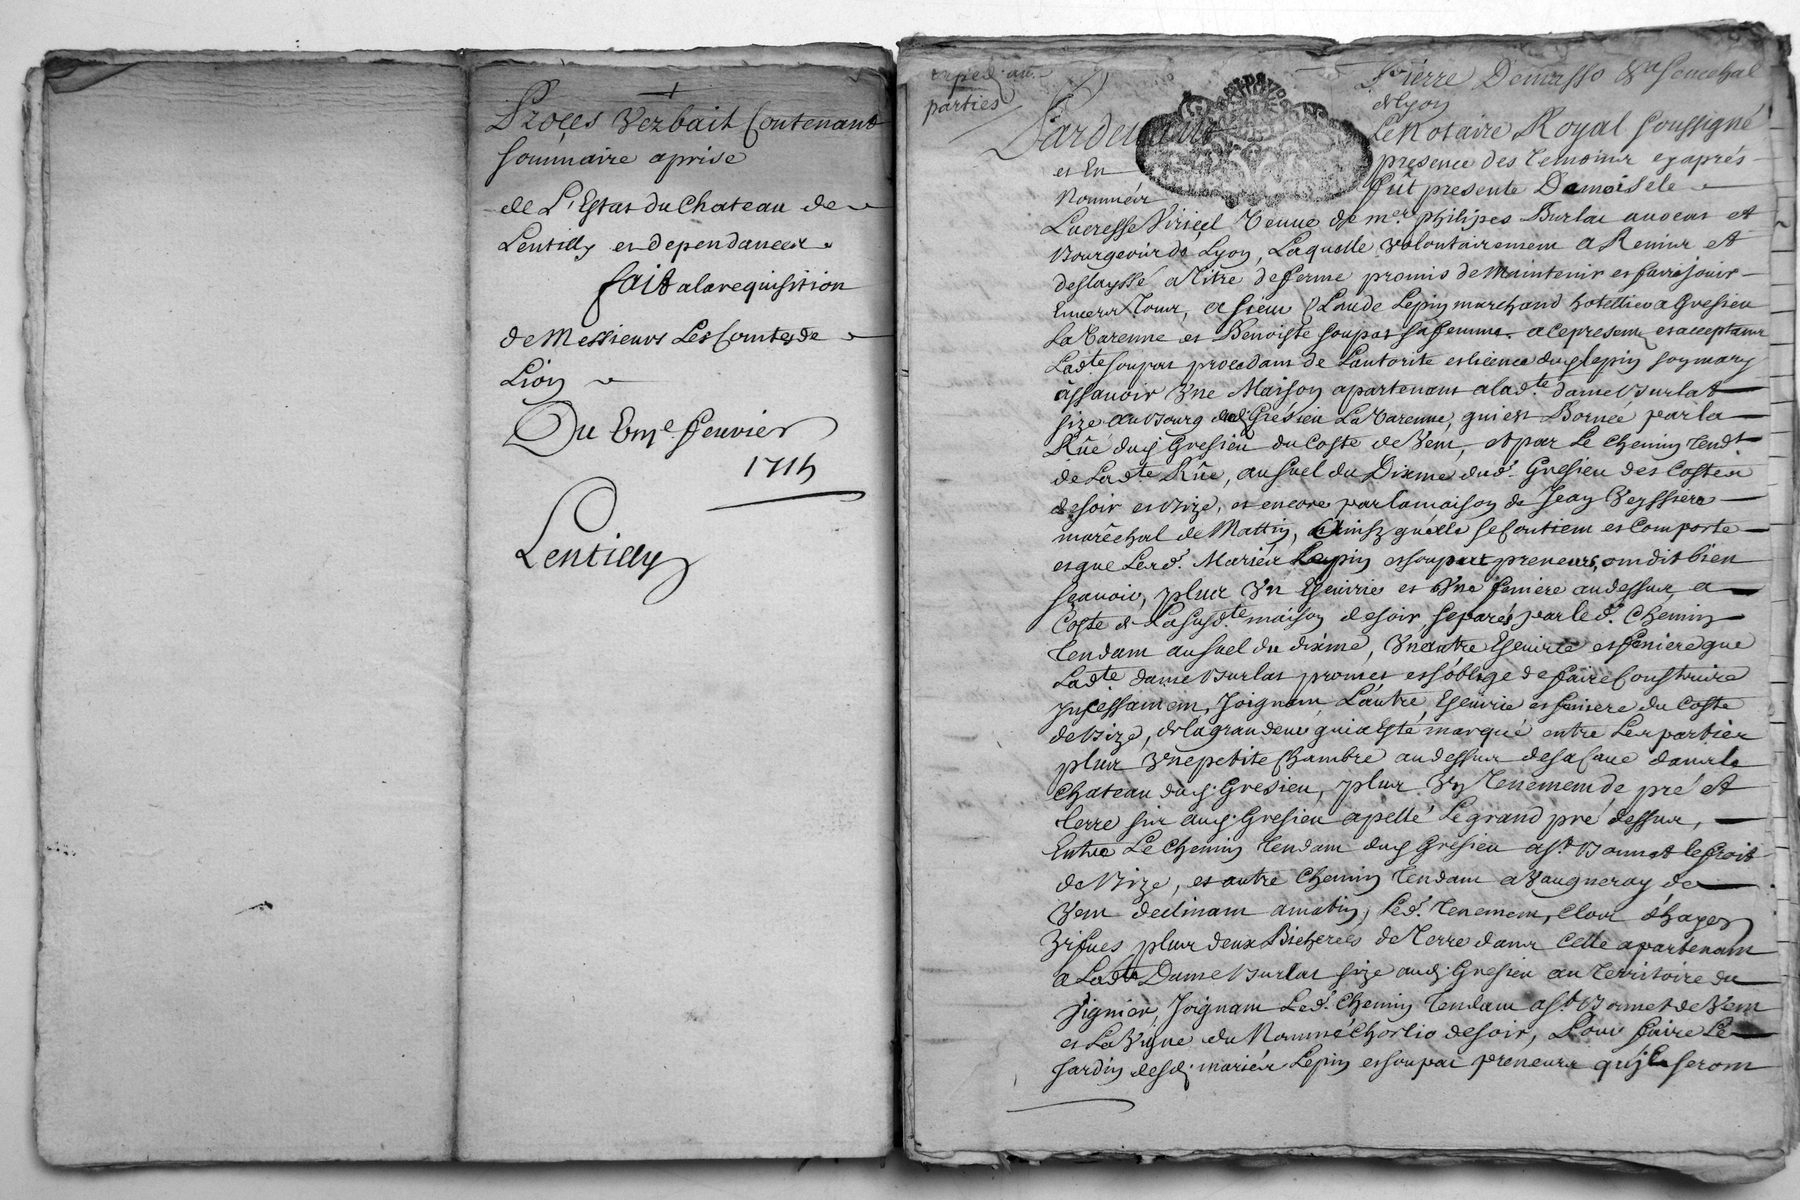 Procês Verbail Contenant
sommaire aprise
de L'Estat du Chateau de
Lentilly et dependances
fait a la requisition
de Messieurs Les Comtes de
Lion
Du fevrier
Lentilly
exped. aux
parties
Pierre Demasso en senechal
de Lyon
Pardevant Le Notaire Royal soussigné
et En presence des temoins cy aprés
Nommés fût presente Damoiselle
Lucresse veuve de me. philipes Burlat avocat et
Bourgeois de Lyon, Laquelle volontairement a Remis et
delaissé a titre de ferme promis de Maintenir et faire jouir
Envers tous, a sieur Claude Lepin marchand hotellier a Gresieu
La Varenne et Benoiste soupat sa femme a ce presens et acceptant
Ladte soupat procedant de L'autorité et licence dud lepin son mary
assavoir Une Maison apartenant a la dte dame Burlat
size au Bourg dud Gresieu La Varenne, qui est Bornée par la
Rüe dud Gresieu du Coste de Vent, et par Le chemin tendt
de Ladte Rüe, au suel du Dixme dud. Gresieu des Costes
de soir et Bize, et encore par la maison de Jean Veyssiere
marêchal de Mattin, Ainsy qu'elle se Contient et Comporte
et que Lesd. Mariés Lepin et soupat preneurs, ont dit bien
sçavoir, plus Un Ecuirie et Une feniere au dessus, a
Coste de La susdte maison de soir, separés par le d. Chemin
tendant au suel du dixme, Un autre Ecuirie et feniere que
Ladte dame Burlat promet et s'oblige de faire Construire
Incessament, Joignant L'autre Ecuirie et feniere du Coste
de Bize, de la grandeur qui a Esté marqué entre Les parties
plus Une petite Chambre au dessus de sa Cave dans le
Chateau dud. Gresieu, plus Un tenement de pré et
terre sis aud. Gresieu apellé Le grand pré dessus,
Entre Le Chemin tendant dud Gresieu a st. Bonnet le froit
de Bize, et autre Chemin tendant a Vaugneray de
Vent declinant a matin, Led. tenement, Clos d'hayes
Vifves plus deux Bicherées de Terre dans Celle apartenant
a Ladte Dame Burlat size aud. Gresieu au territoire du
Joignant Led. Chemin tendant a st. Bonnet de Vent
et La Vigne du Nommé de soir, Pour faire Le
Jardin desd. mariés Lepin et soupat preneurs qu'ils seront